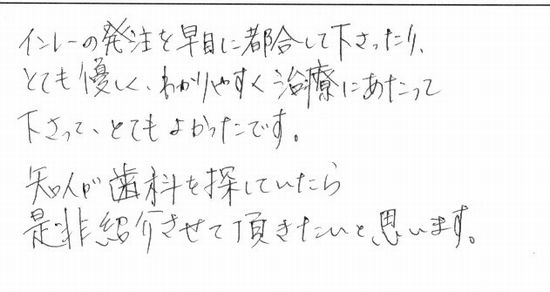 インレーの発注を早目に都合して下さったり、
とても優しく、わかりやすく治療にあたって
下さって、とてもよかったです。
知人が歯科を探していたら
是非紹介させて頂きたいと思います。